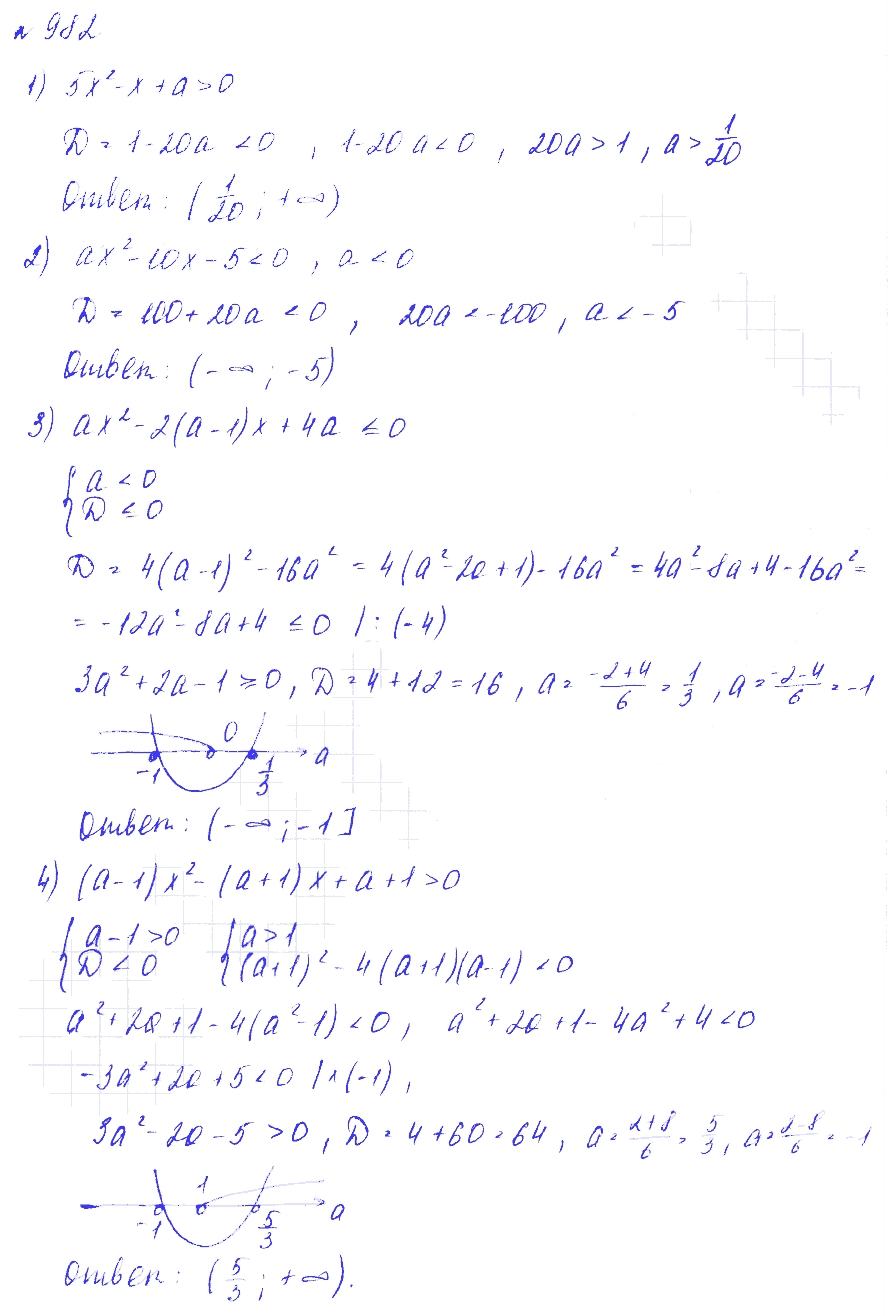 н 982
1) 5x² - x + a > 0
D = 1 - 20a < 0 , 1 - 20a < 0 , 20a > 1 , a > 1/20
Ответ: (1/20 ; +∞)
2) ax² - 10x - 5 < 0 , a < 0
D = 100 + 20a < 0 , 20a < -100 , a < -5
Ответ: (-∞ ; -5)
3) ax² - 2(a-1)x + 4a ≤ 0
{ a < 0
{ D ≤ 0
D = 4(a-1)² - 16a² = 4(a² - 2a + 1) - 16a² = 4a² - 8a + 4 - 16a² =
= -12a² - 8a + 4 ≤ 0 | : (-4)
3a² + 2a - 1 ≥ 0 , D = 4 + 12 = 16 , a = (-2+4)/6 = 1/3 , a = (-2-4)/6 = -1
0
-1 1/3 a
Ответ: (-∞ ; -1]
4) (a-1)x² - (a+1)x + a + 1 > 0
{ a - 1 > 0 { a > 1
{ D < 0 { (a+1)² - 4(a+1)(a-1) < 0
a² + 2a + 1 - 4(a² - 1) < 0 , a² + 2a + 1 - 4a² + 4 < 0
-3a² + 2a + 5 < 0 | × (-1) ,
3a² - 2a - 5 > 0 , D = 4 + 60 = 64 , a = (2+8)/6 = 5/3 , a = (2-8)/6 = -1
1
-1 5/3 a
Ответ: (5/3 ; +∞).